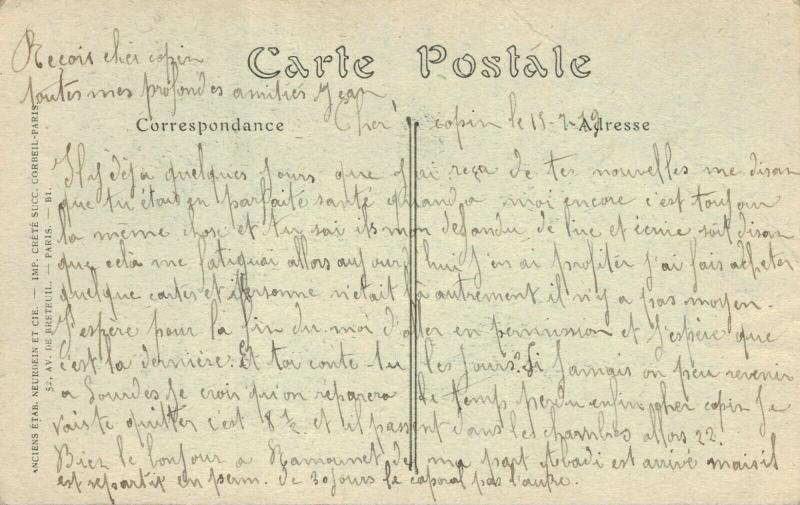 Carte Postale
Correspondance
Adresse
Recois cher copin
toutes mes profondes amitiés Jean
Cher copin le 15-7-19
Il y déja quelques jours que j'ai reçu de tes nouvelles me disan
que tu étais en parfaite santé quand a moi encore c'est toujou
la même chose et tu sai ils mon defandu de lire et écrire soit disan
que celà me fatiguai allors aujourd'hui j'en ai profiter j'ai fais acheter
quelque cartes et personne n'était là autrement il n'y a pas moyen.
J'espère pour la fin du moi d'aller en permission et j'espère que
c'est la dernière. Et toi conte-tu les jours? Si jamais on peu revenir
a Lourdes je crois qu'on réparera le temp perdu enfin cher copin je
vais te quitter c'est 8 h et il passent dans les chambres allors 22.
Biez le bonjour a Ramounet de ma part Abadi est arrivé mais il
est repartit en perm. de 30 jours le caporal pas l'autre.
ANCIENS ÉTAB. NEURDEIN ET CIE. — IMP. CRÉTÉ SUCC. CORBEIL-PARIS
52, AV. DE BRETEUIL. — PARIS. — BI.